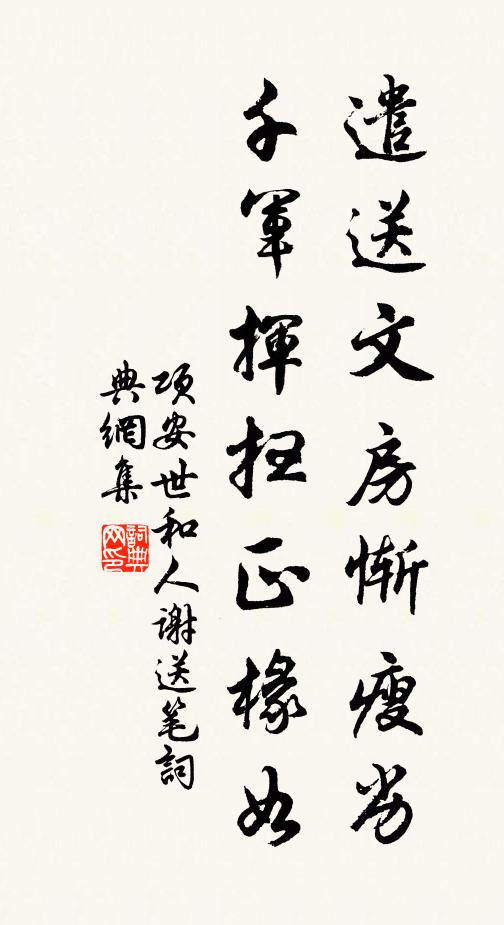 遣送文房惭瘦劣
千軍揮扫正椽如
项安世和人謝送笔詞
典網集
詞典网印